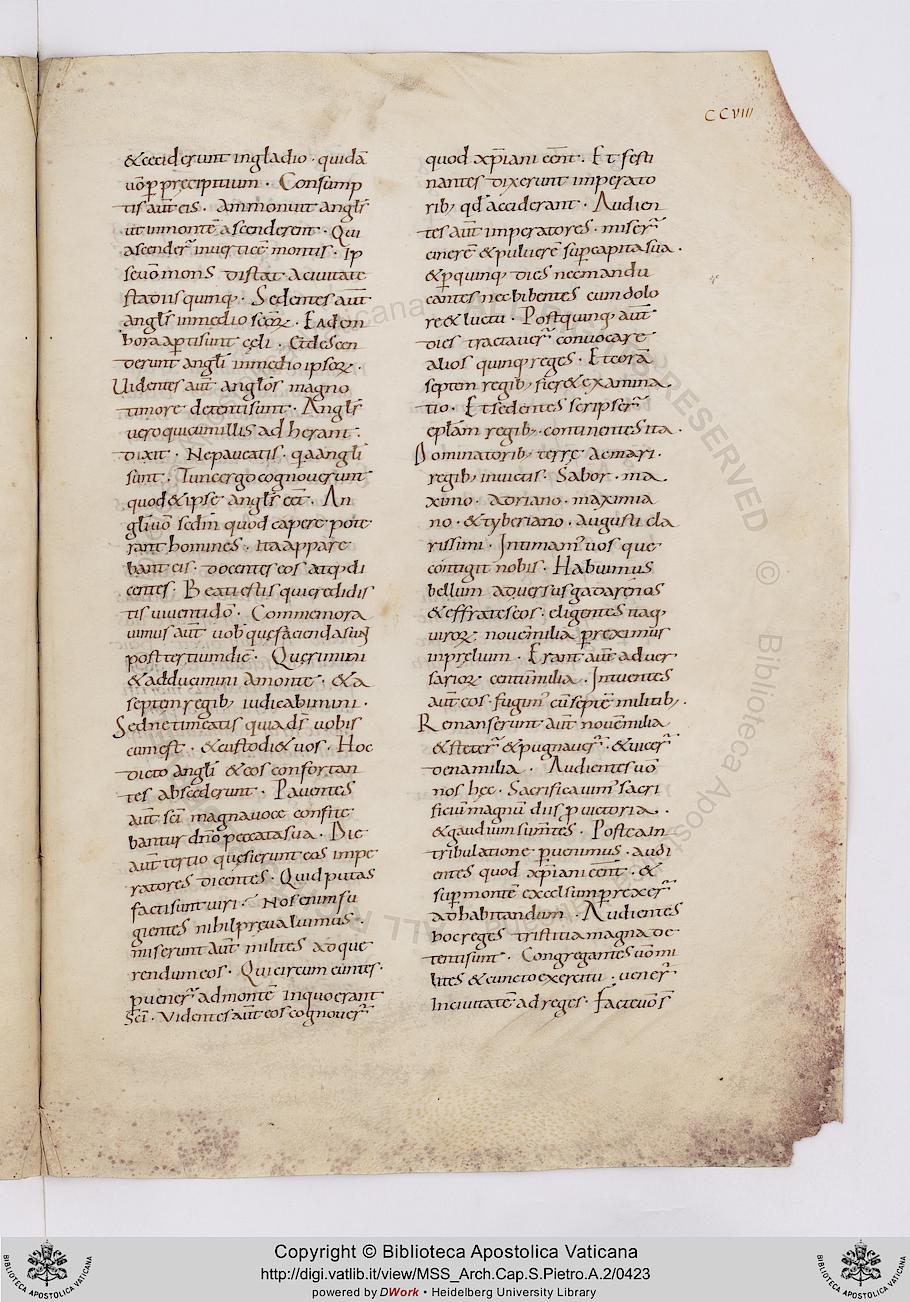 CCVIII
&ceciderunt ingladio · quidā
ūo ꝑ pręcipitium · Consump
tis aūt eis · Ammonuit angl̄s
ut inmontē ascenderent · Qui
ascender̄ inuerticē montis · Ip
seuō mons distat aciuitate
stadiis quinq; · Sedentes aūt
angl̄s inmedio eoꝝ · Eadem
hora apti sunt cęli · Et descen
derunt angl̄i inmedio ipsoꝝ ·
Uidentes aūt anglōs magno
timore detenti sunt · Angl̄s
uero qui cum illis adherant ·
dixit · Ne paueatis · qa angl̄i
sunt · Tunc ergo cognouerunt
quod & ipse angl̄s eēt · An
gl̄i uō sedm̄ quod capere pote
rant homines · Ita appare
bant eis · docentes eos atq; di
centes · Beati estis qui credidis
tis uiuenti dn̄o · Commemora
uimus aūt uob̄ quę facienda sunt
post tertium diē · Querimini
& adducimini amonte · & a
septem regib; iudicabimini ·
Sed ne timeatis quia dn̄s uobis
cum est · & custodi& uos · Hoc
dicto angl̄i & eos confortan
tes abscederunt · Pauentes
aūt sc̄i magna uoce confite
bantur dn̄o peccata sua · Die
aūt tertio quęsierunt eos impe
ratores dicentes · Quid putas
facti sunt uiri · Nos enim fu
gientes nihil pręualuimus ·
miserunt aūt milites ad que
rendum eos · Qui circumeuntes ·
ꝑuener̄ ad montē inquo erant
Sc̄i · Videntes aūt eos cognouer̄
quod xp̄iani eēnt · Et festi
nantes dixerunt imperato
rib; qd̄ acciderant · Audien
tes aūt imperatores · miser̄
cinerē & puluerē sup capita sua ·
& ꝑ quinq; dies nec mandu
cantes nec bibentes cum dolo
re & luctu · Post quinq; aūt
dies tractauer̄ conuocare
alios quinq; reges · Et corā
septem regib; fier& examina
tio · Et sedentes scripser̄
epl̄am regib; · continentes ita ·
Dominatorib; terrę ac mari ·
regib; inuictis · Sabor · ma
ximo · adriano · maximia
no · & tyberiano · augusti cla
rissimi · Intimam̄ uos que
cōtigit nobis · Habuimus
bellum aduersus gadarenos
& effrateseos · eligentes itaq;
uiroꝝ nouē milia ꝑreximus
in pręlium · Erant aūt aduer
sarioꝝ centū milia · Intuentes
aūt eos · fugim̄ cū septē militib; ·
Remanserunt aūt nouē milia
& steter̄ & pugnauer̄ · & uicer̄
dena milia · Audientes uō
nos hęc · Sacrificauim̄ sacri
ficiū magnū diis ꝓ uictoria ·
& gaudium sum̄tes · Postea in
tribulatione ꝑuenimus · audi
entes quod xp̄iani eēnt · &
sup montē excelsum ꝑrexer̄
ad habitandum · Audientes
hoc reges tristitia magna de
tenti sunt · Congregantes uō mi
lites & cuncto exercitu · uener̄
In ciuitatē ad reges · facie uōs
Copyright © Biblioteca Apostolica Vaticana
http://digi.vatlib.it/view/MSS_Arch.Cap.S.Pietro.A.2/0423
powered by DWork • Heidelberg University Library